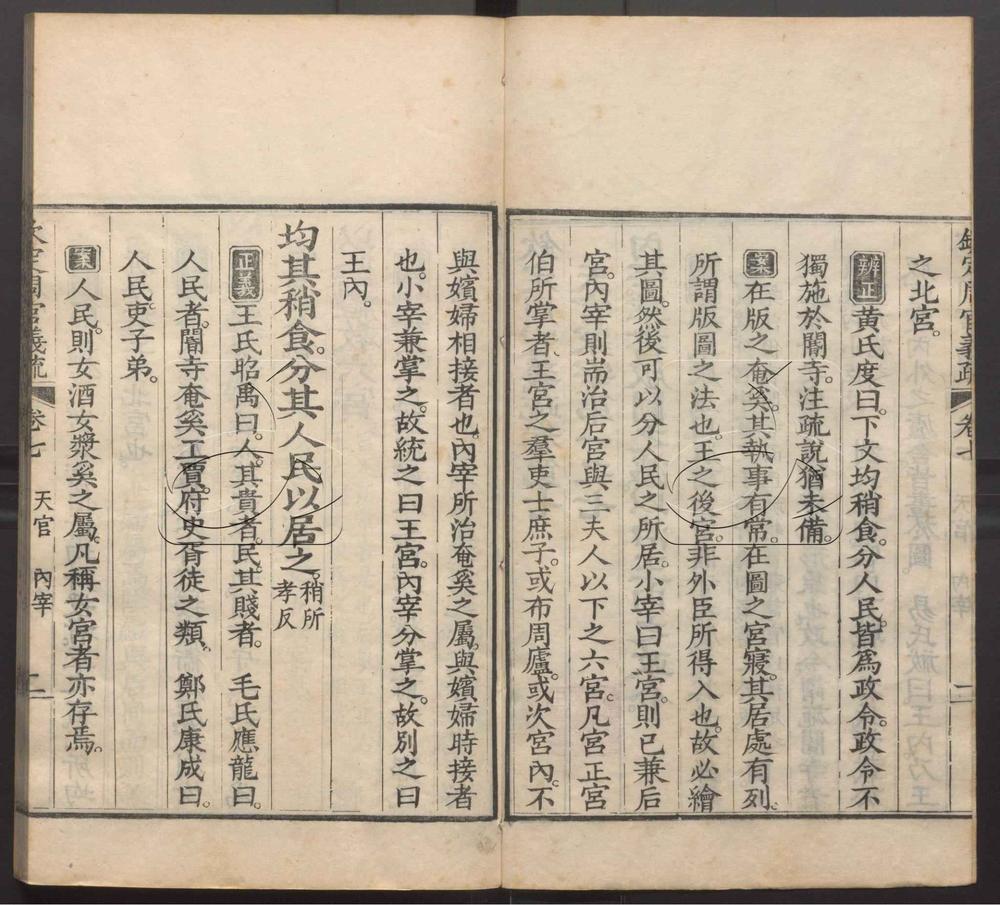 欽定周官義疏 卷七 二
之北宮。
辨正 黃氏度曰。下文均稍食。分人民。皆爲政令。政令不
獨施於閽寺。注疏說猶未備。
案 在版之奄奚。其執事有常。在圖之宮寢。其居處有列。
所謂版圖之法也。王之後宮。非外臣所得入也。故必繪
其圖。然後可以分人民之所居。小宰曰王宮。則已兼后
宮。內宰則耑治后宮與三夫人以下之六宮。凡宮正宮
伯所掌者。王宮之羣吏士庶子。或布周廬。或次宮內。不
與嬪婦相接者也。內宰所治奄奚之屬。與嬪婦時接者
也。小宰兼掌之。故統之曰王宮。內宰分掌之。故別之曰
王內。
均其稍食。分其人民以居之。稍所
孝反
正義 王氏昭禹曰。人。其貴者。民。其賤者。 毛氏應龍曰。
人民者。閽寺奄奚工賈府史胥徒之類。 鄭氏康成曰。
人民。吏子弟。
案 人民。則女酒女漿奚之屬。凡稱女宮者亦存焉。
欽定周官義疏 卷七 天官 內宰 二